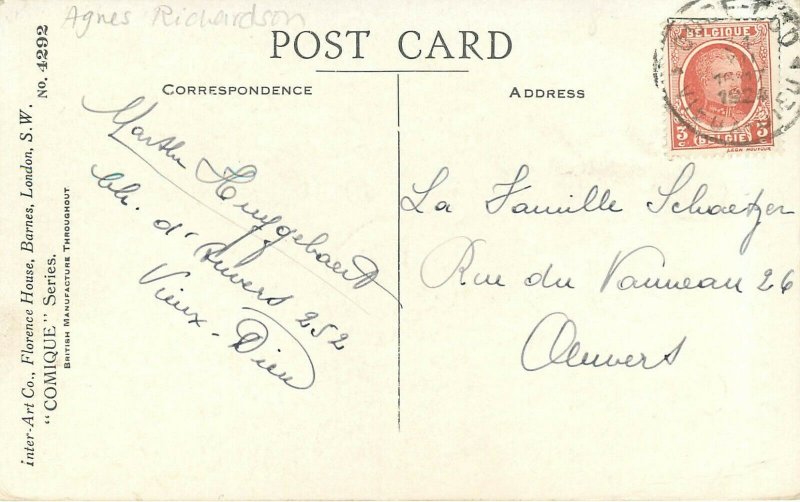 Agnes Richardson
POST CARD
CORRESPONDENCE
ADDRESS
Inter-Art Co., Florence House, Barnes, London, S.W. No. 4292
"COMIQUE" Series.
BRITISH MANUFACTURE THROUGHOUT
Martha Huygebaert
Ch. d'Anvers 252
Vieux-Dieu
La Famille Schaetzen
Rue du Vanneau 26
Anvers
BELGIQUE
3 c 3 c
BELGIË